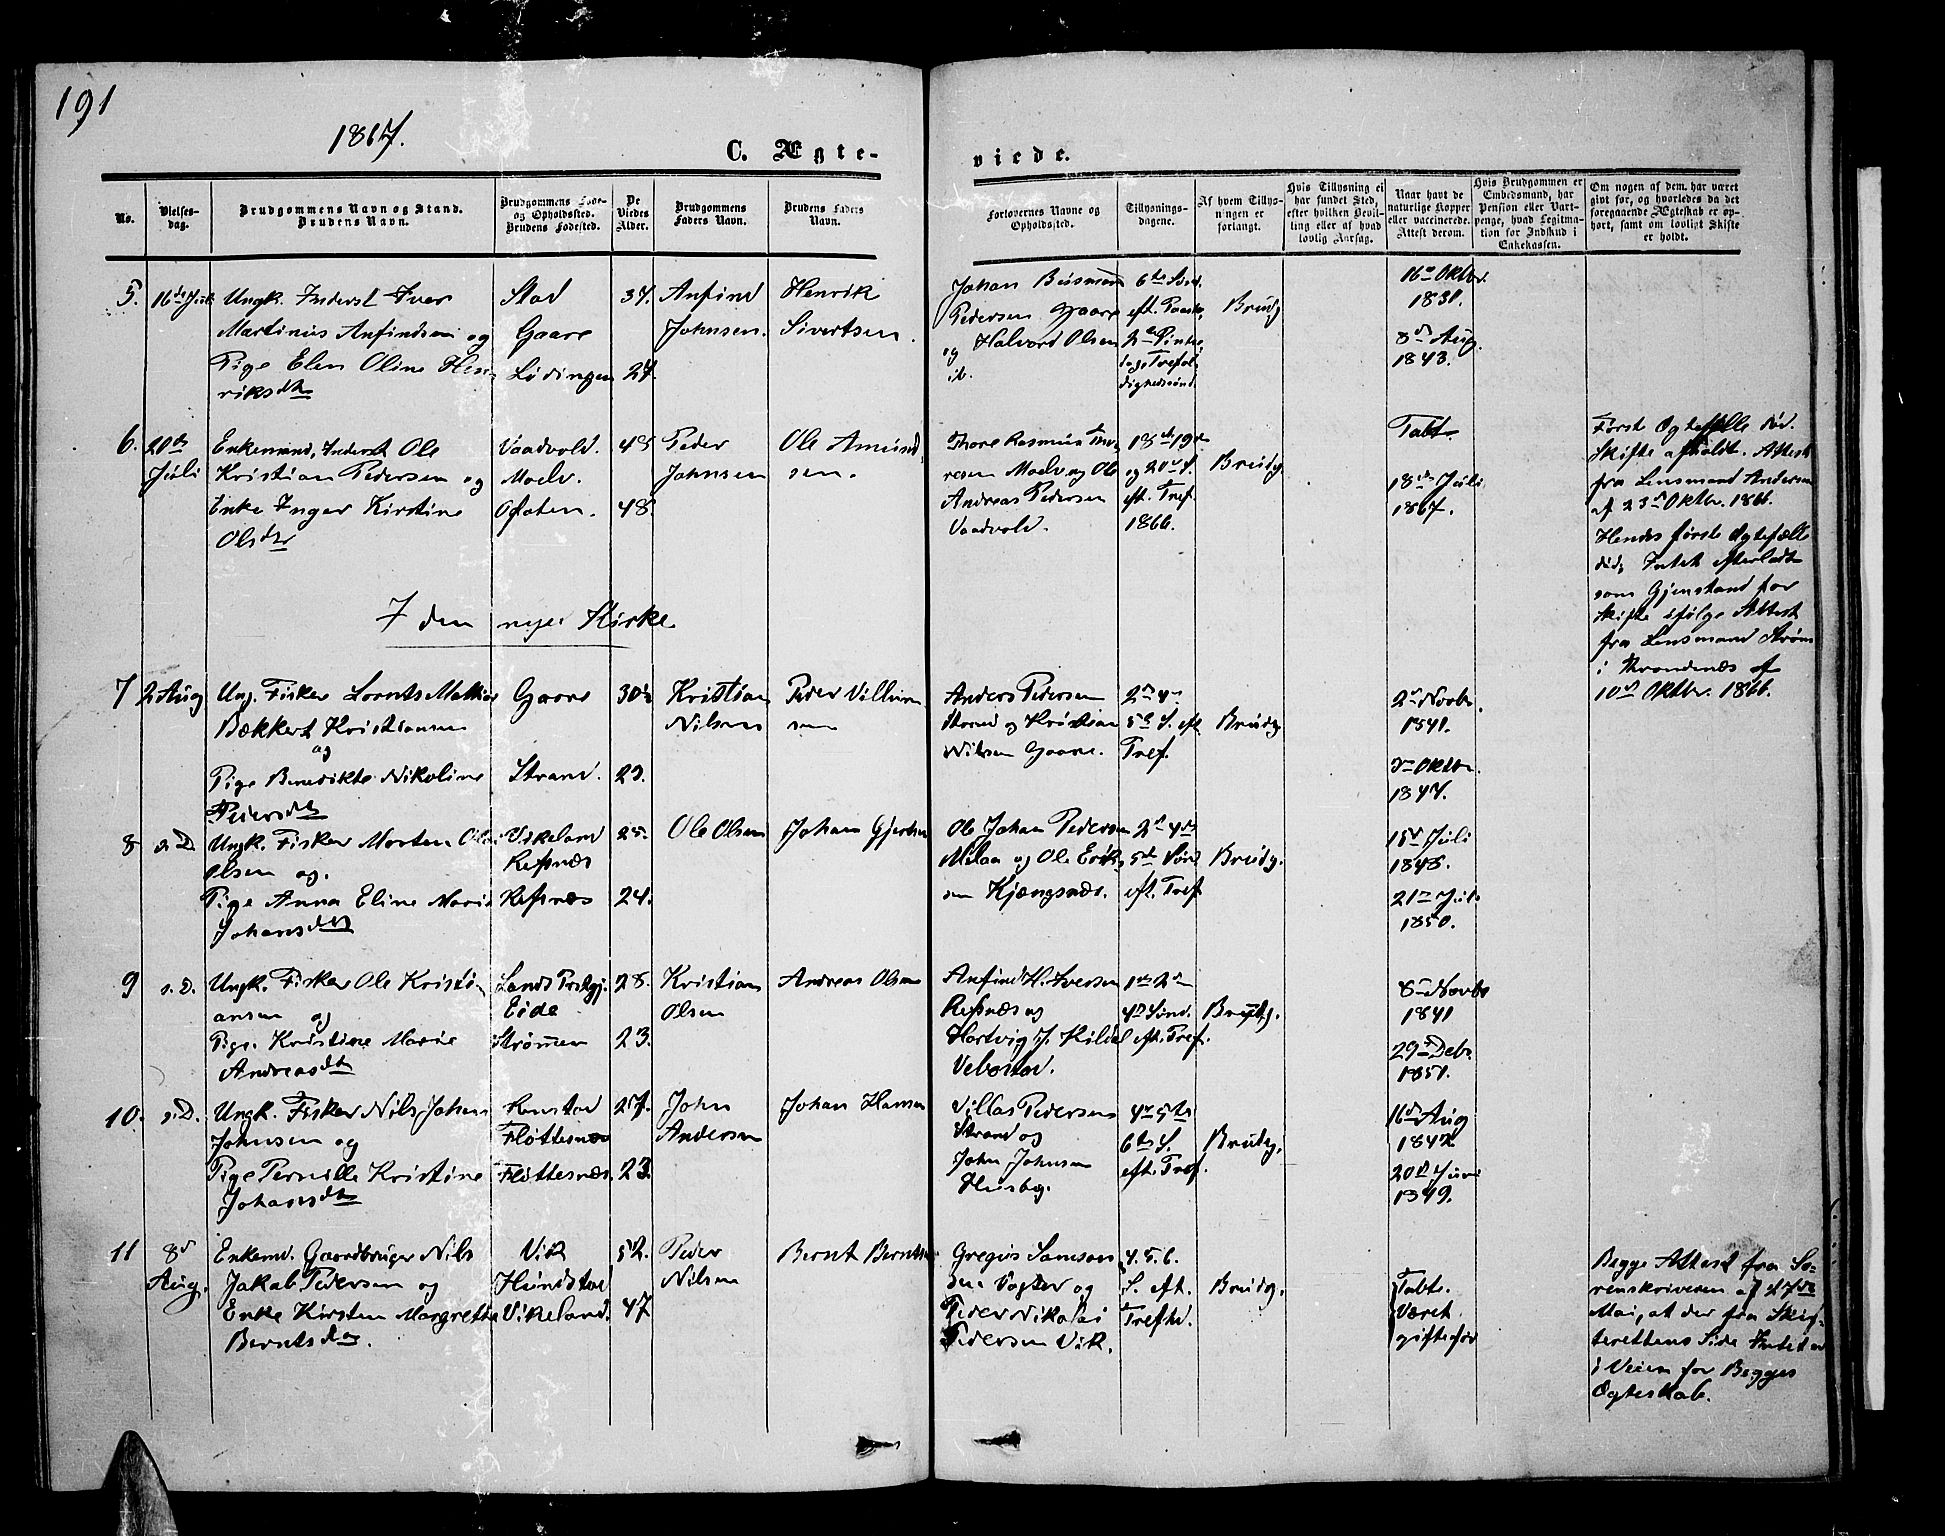 191
1867.
C. Ægte-
viede.
No.
Vielses-
dag.
Brudgommens Navn og Stand.
Brudens Navn.
Brudgommens Føde-
og Opholdssted.
Brudens Fødested.
De
Viedes
Alder.
Brudgommens
Faders Navn.
Brudens Faders
Navn.
Forlovernes Navne og
Opholdssted.
Tillysnings-
dagene.
Af hvem Tillys-
ningen er
forlangt.
Hvis Tillysning ei
har fundet Sted,
efter hvilken Bevil-
ling eller af hvad
lovlig Aarsag.
Naar havt de
naturlige Kopper
eller vaccinerede.
Attest derom.
Hvis Brudgommen er
Embedsmand, har
Pension eller Vart-
penge, hvad Legitima-
tion for Indskud i
Enkekassen.
Om nogen af dem har været
givt før, og hvorledes da det
foregaaende Ægteskab er op-
hørt, samt om lovligt Skifte
er holdt.
5.
Ungk. Inderst Iver
Martinus Anfindsen og
Pige Elen Oline Hen-
riksdtr
Stad
Gaare
Lødingen
37.
27.
Anfind
Johnsen.
Henrik
Sivertsen.
Johan
Pedersen Gaare
og Halvord Olsen
ib.
6te Sønd.
eft. Paaske,
Brudg
16de Oktbr.
1831.
8de Aug.
1843.
6.
20de
Juli
Enkemand, Inderst Ole
Kristian Pedersen og
Enke Inger Kirstine
Olsdtr
Vaadvold.
Moelv.
Ofoten.
48.
Peder
Johnsen
Ole Amund
sen.
Thore Rasmus
Moelv og Ole
Andreas Pedersen
Vaadvold.
18de 19de
og 20de S.
eft. Tref.
1866.
Brudg.
Tabt.
18de Juli
1867.
Første Ægtefælle død.
Skifte afholdt. Attest
fra Lensmand Andersen
af 23de Oktbr. 1866.
Hendes første Ægtefælle
død, Intet efterladt
som Gjenstand for
Skifte ifølge Attest
fra Lensmand Strøm
i Trondenæs af
10de Oktbr. 1866.
I den nye Kirke
7
2 Aug
Ung. Fisker Lornts Mathias
Bækkert Kristiansen
og
Pige Benedikte Nikoline
Pedersdtr
Gaare
Strand.
23.
Kristian
Nilsen
Peder Villum
sen
Anders Pedersen
og Kristian
Nilsen Gaare.
2de 4de
5te S. eft
Tref.
Brudg.
2de Novbr.
1841.
Oktbr.
1847.
8
s. D.
Ungk. Fisker Morten
Olsen og.
Pige Anna Eline Marie
Johansdtr
Vikeland
Refsnæs
Refsnæs
25.
24.
Ole Olsen
Johan
Ole Johan Pedersen
Melaa og Ole Erik
sen Kjængsnæs.
2de 4de
5te Sønd
eft. Tref
Brudg.
15de Juli
1848.
21de Juli
1850.
9
s. D.
Ungk. Fisker Ole Kristi-
ansen og
Pige. Kristine Marie
Andreasdtr
Eide
Strømmen
28.
23.
Kristian
Olsen
Andreas Olsen
Anfind H. Iversen
Refsnæs og
Hartvig J.
1ste 2de
4de Sønd.
eft. Tref.
Brudg.
8de Novbr
1841
29de Debr.
1851.
10.
s. D.
Ungk. Fisker Nils Johan
Johnsen og
Pige Pernille Kristine
Johansdtr
Fløttesnæs
Fløttesnæs.
27.
23.
John
Andersen
Johan Hansen
Villas Pedersen
Strand og
John Johnsen
Husby.
4de 5te
6te S.
eft. Tref.
Brudg.
16de Aug
1842.
20de Juni
1849.
11
8de
Aug.
Enkemd. Gaardbruger Nils
Jakob Pedersen og
Enke Kirsten Margrethe
Berntsdtr.
Vik
Hundstad
Vikeland.
52.
47
Peder
Nilsen
Bernt Berntsen
Gregus Samson
sen og
Peder Nikolai
Pedersen Vik.
4. 5. 6.
S. eft.
Trefhd.
Brudg.
Tabt.
Været
gift før
Begge Attest fra So-
renskriveren af 27de
Mai, at der fra Skif-
terettens Side Intet er
i Veien for Begges
Ægteskab.